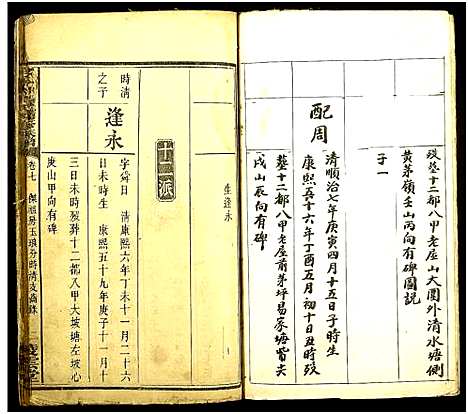 歿塟十二都八甲老屋山大園外清水塘側
黄茅嶺壬山丙向有碑圖説
子一
配周
清順治七年庚寅四月十五日子時生
康熙五十六年丁酉五月初十日丑時歿
塟十二都八甲老屋前茅坪易家塘背尖
戌山辰向有碑
生逢永
派
時清
之子
逢永
字舜日 清康熙六年丁未十一月二十六
日未時生 康熙五十九年庚子十一月十
三日未時歿葬十二都八甲大坡塘左坡心
庚山甲向有碑
卷七
傑祖房玉琅分時清支齒錄